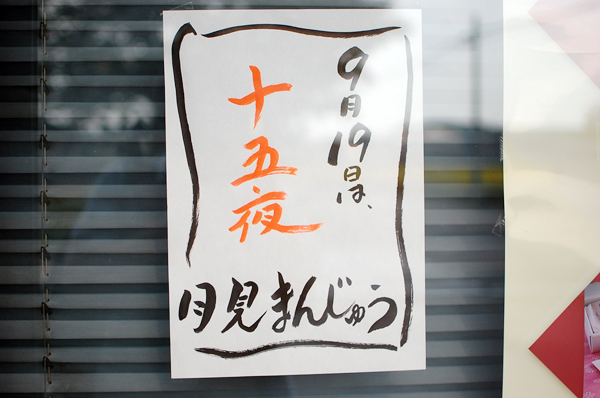 9月19日は、
十五夜
月見まんじゅう